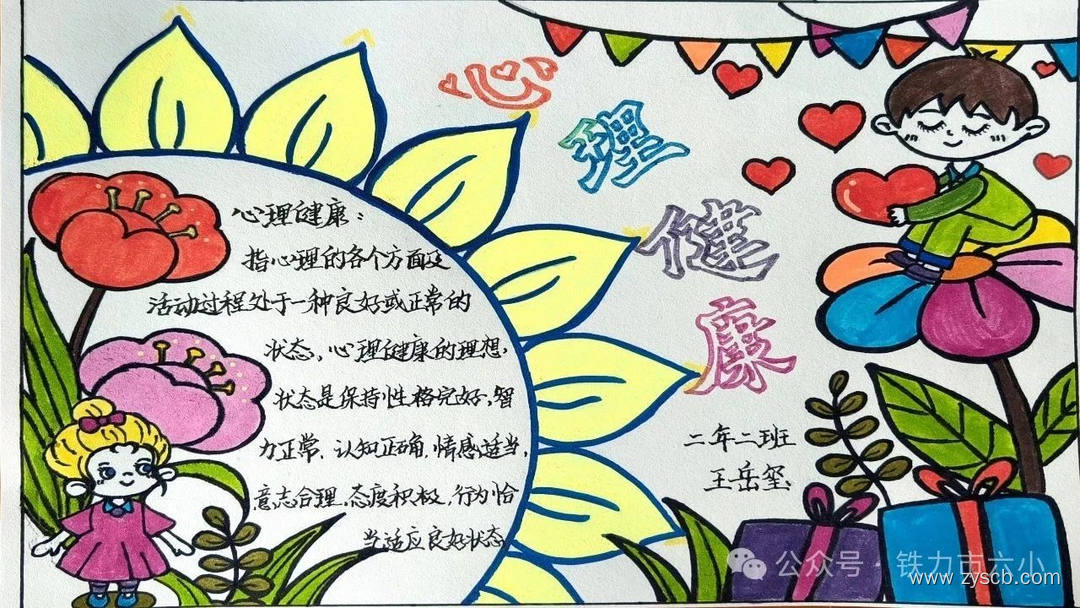 心理健康
心理健康：
指心理的各个方面及
活动过程处于一种良好或正常的
状态。心理健康的理想
状态是保持性格完好,智
力正常、认知正确、情感适当,
意志合理、态度积极、行为恰
当适应良好状态
二年二班
王岳玺
公众号·铁力市六小
www.zyscb.com